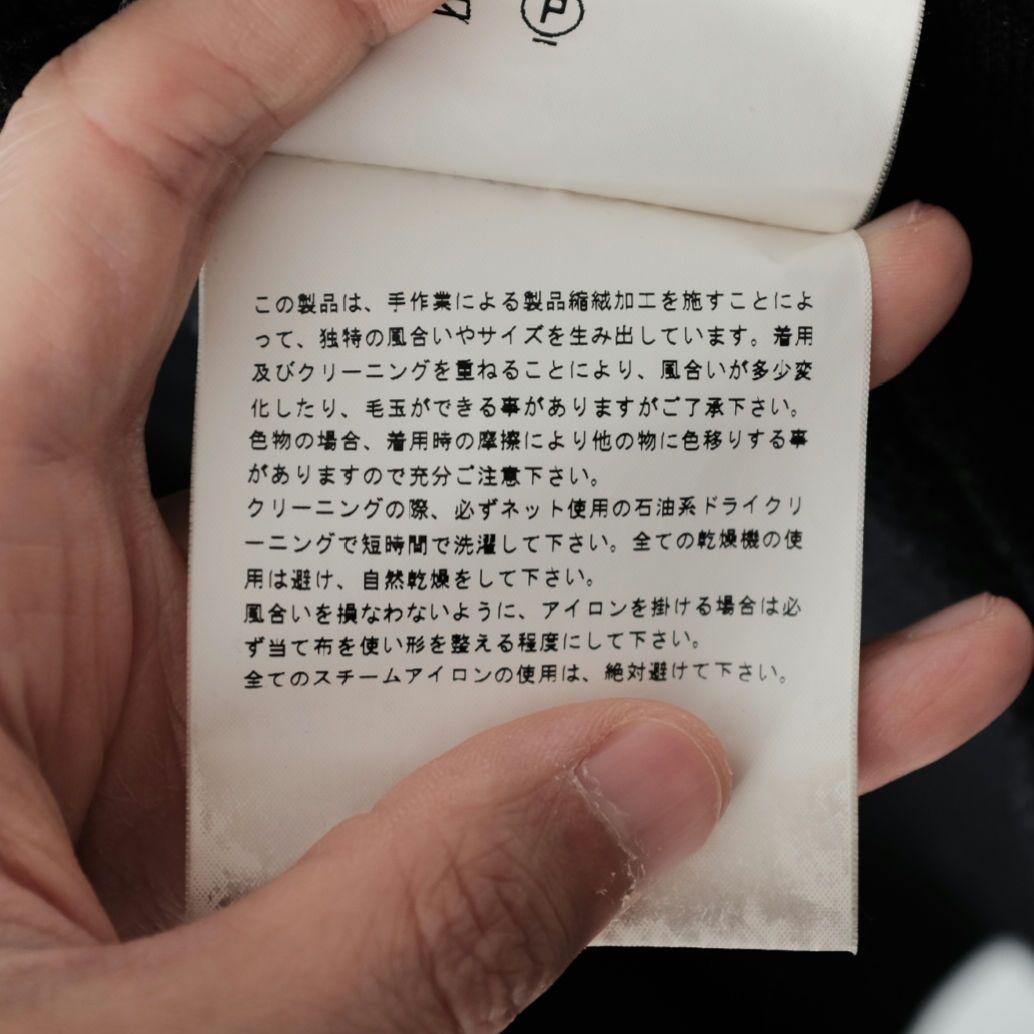 P
この製品は、手作業による製品縮絨加工を施すことによ
って、独特の風合いやサイズを生み出しています。着用
及びクリーニングを重ねることにより、風合いが多少変
化したり、毛玉ができる事がありますがご了承下さい。
色物の場合、着用時の摩擦により他の物に色移りする事
がありますので充分ご注意下さい。
クリーニングの際、必ずネット使用の石油系ドライクリ
ーニングで短時間で洗濯して下さい。全ての乾燥機の使
用は避け、自然乾燥をして下さい。
風合いを損なわないように、アイロンを掛ける場合は必
ず当て布を使い形を整える程度にして下さい。
全てのスチームアイロンの使用は、絶対避けて下さい。